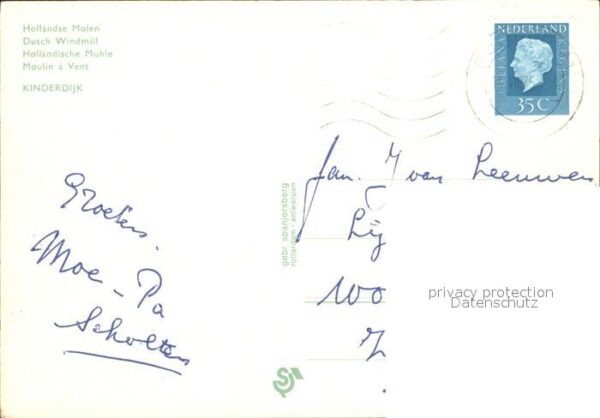 Hollandse Molen
Dutch Windmill
Holländische Mühle
Moulin à Vent
KINDERDIJK
NEDERLAND
JULIANA REGINA
35C
gebr spanjersberg
rotterdam - antwerpen
Fam. J van Leeuwen
Lij
Groeten.
Moe - Pa
Scholten
privacy protection
Datenschutz